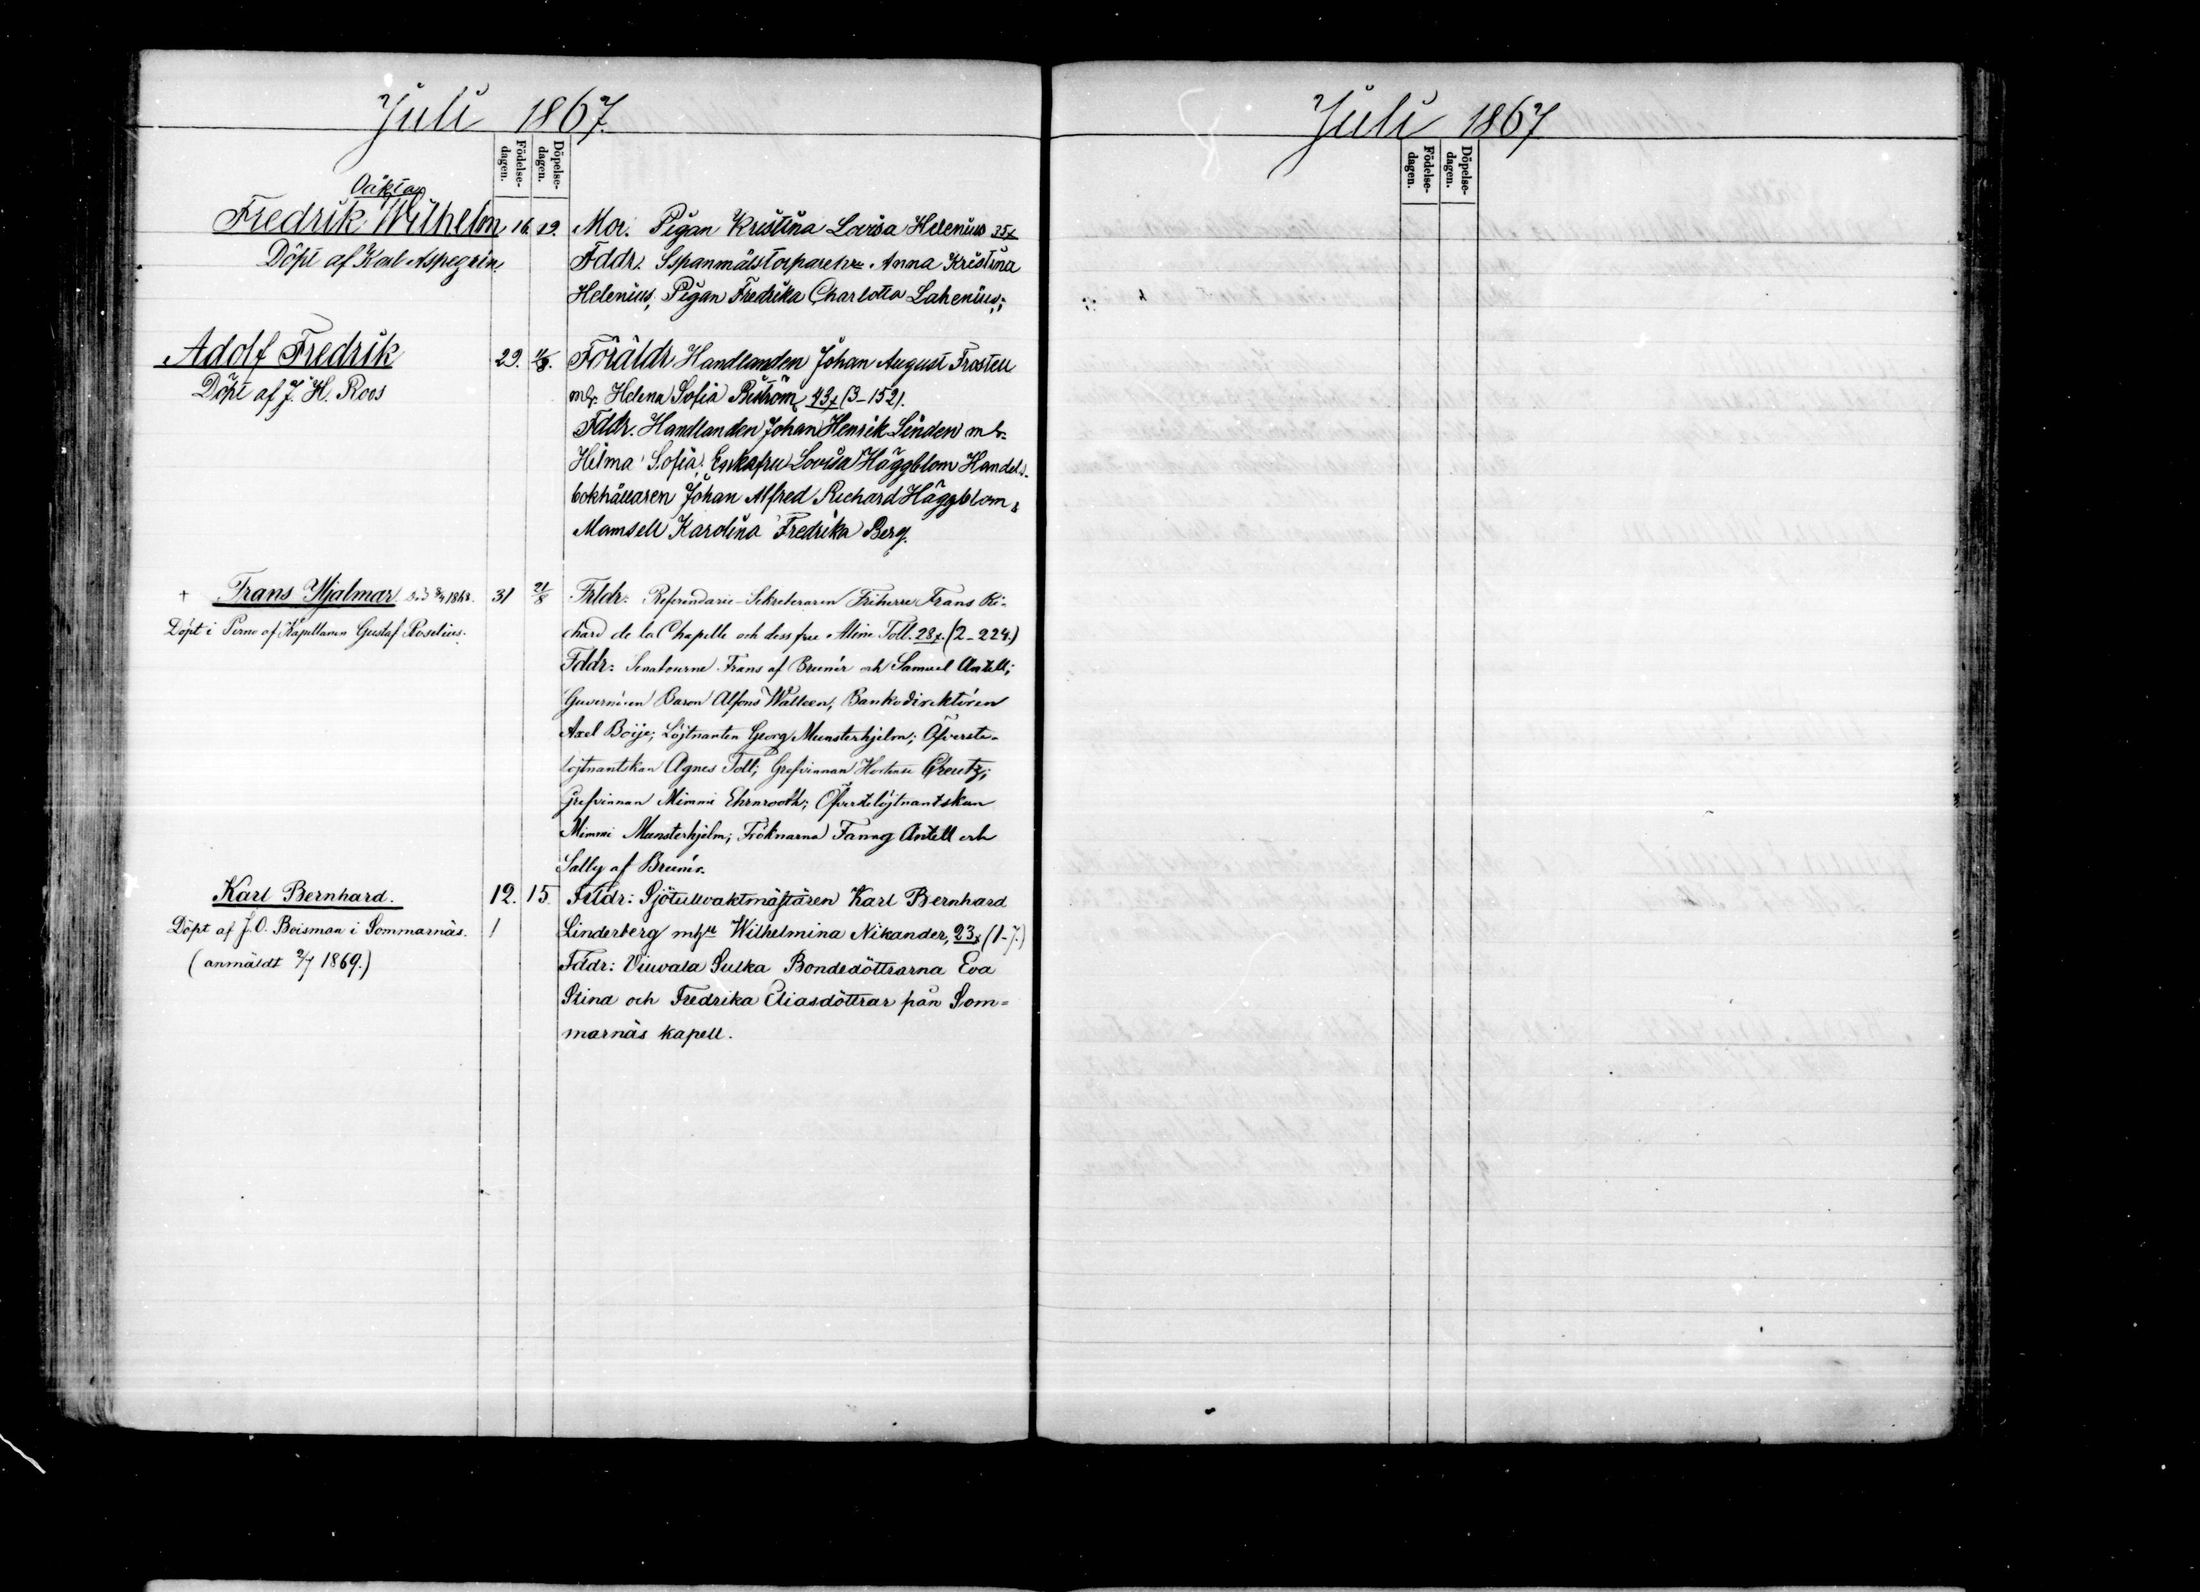 Juli 1867.
Födelse-
dagen.
Döpelse-
dagen.
Oäkta
Fredrik Wilhelm 16 19. Mor. Pigan Kristina Lovisa Helenius 35x
Döpt af Karl Aspegrén Fddr. Anna Kristina
Helenius, Pigan Fredrika Charlotta Lahenius;
Adolf Fredrik 29. Föräldr Handlanden Johan August Frostell
Döpt af J. H. Roos Helena Sofia 43x (3-152).
Fddr. Handlanden Johan Henrik Linden
Hilma Sofia, Enkefru Lovisa Häggblom Handels-
bokhållaren Johan Alfred Richard Häggblom,
Mamsell Karolina Fredrika Berg.
+ Frans Hjalmar 31 21/8 Frldr: Referendarie-Sekreteraren Friherre Frans Ri-
Döpt i Perno af Kapellanen Gustaf Roselius. chard de la Chapelle och dess fru Aline Toll. 28x. (2-224.)
Fddr: Senatourne Frans af Brunér och Samuel Antell;
Guvernören Baron Alfons Walleen, Bankodirektören
Axel Boije; Löjtnanten Georg Munsterhjelm; Öfverste-
löjtnantskan Agnes Toll; Grefvinnan Hortense Creutz;
Grefvinnan Mimmi Ehrnrooth; Öfverstelöjtnantskan
Mimmi Munsterhjelm; Fröknarna Fanny Antell och
Sally af Brunér.
Karl Bernhard. 12. 15. Frldr: Sjötullvaktmästaren Karl Bernhard
Döpt af J. O. Boisman i Sommarnäs. 1 Linderberg Wilhelmina Nikander, 23x (1-7.)
(anmäldt 9/7 1869.) Fddr: Viuvala Sulka Bondedöttrarna Eva
Stina och Fredrika Eliasdöttrar från Som=
marnäs kapell.
Juli 1867
Födelse-
dagen.
Döpelse-
dagen.